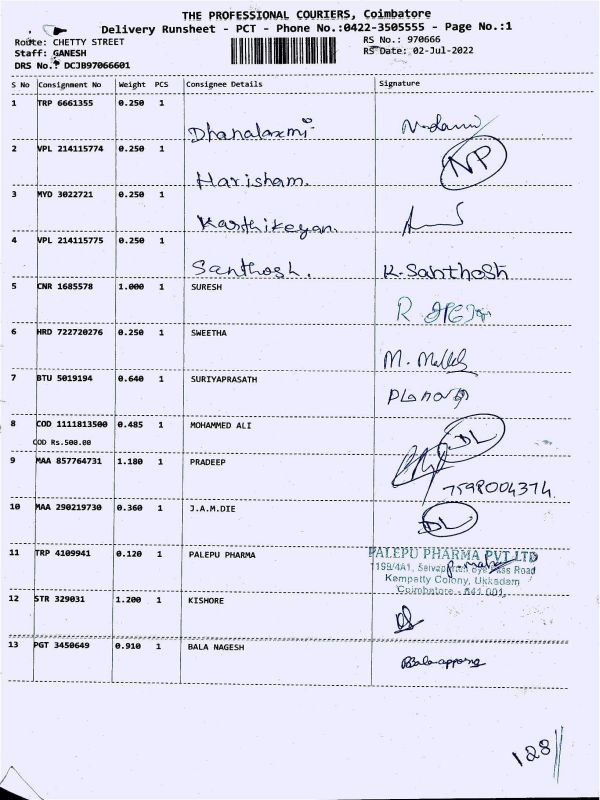 THE PROFESSIONAL COURIERS, Coimbatore
Delivery Runsheet - PCT - Phone No.:0422-3505555 - Page No.:1
Route: CHETTY STREET
RS No.: 970666
Staff: GANESH
RS Date: 02-Jul-2022
DRS No.: DCJB97066601
S No Consignment No Weight PCS Consignee Details Signature
1 TRP 6661355 0.250 1
Dhanalaxmi
2 VPL 214115774 0.250 1 NP
Harisham.
3 MYD 3022721 0.250 1
Karthikeyan.
4 VPL 214115775 0.250 1
Santhosh. K. Santhosh
5 CNR 1685578 1.000 1 SURESH
R
6 HRD 722720276 0.250 1 SWEETHA
M.
7 BTU 5019194 0.640 1 SURIYAPRASATH
8 COD 1111813500 0.485 1 MOHAMMED ALI DL
COD Rs.500.00
9 MAA 857764731 1.180 1 PRADEEP
7598004374
10 MAA 290219730 0.360 1 J.A.M.DIE DL
11 TRP 4109941 0.120 1 PALEPU PHARMA PALEPU PHARMA PVT LTD
199/4A1, Road
Kempatty Colony, Ukkadam
Coimbatore - 641 001.
12 STR 329031 1.200 1 KISHORE
13 PGT 3450649 0.910 1 BALA NAGESH
128